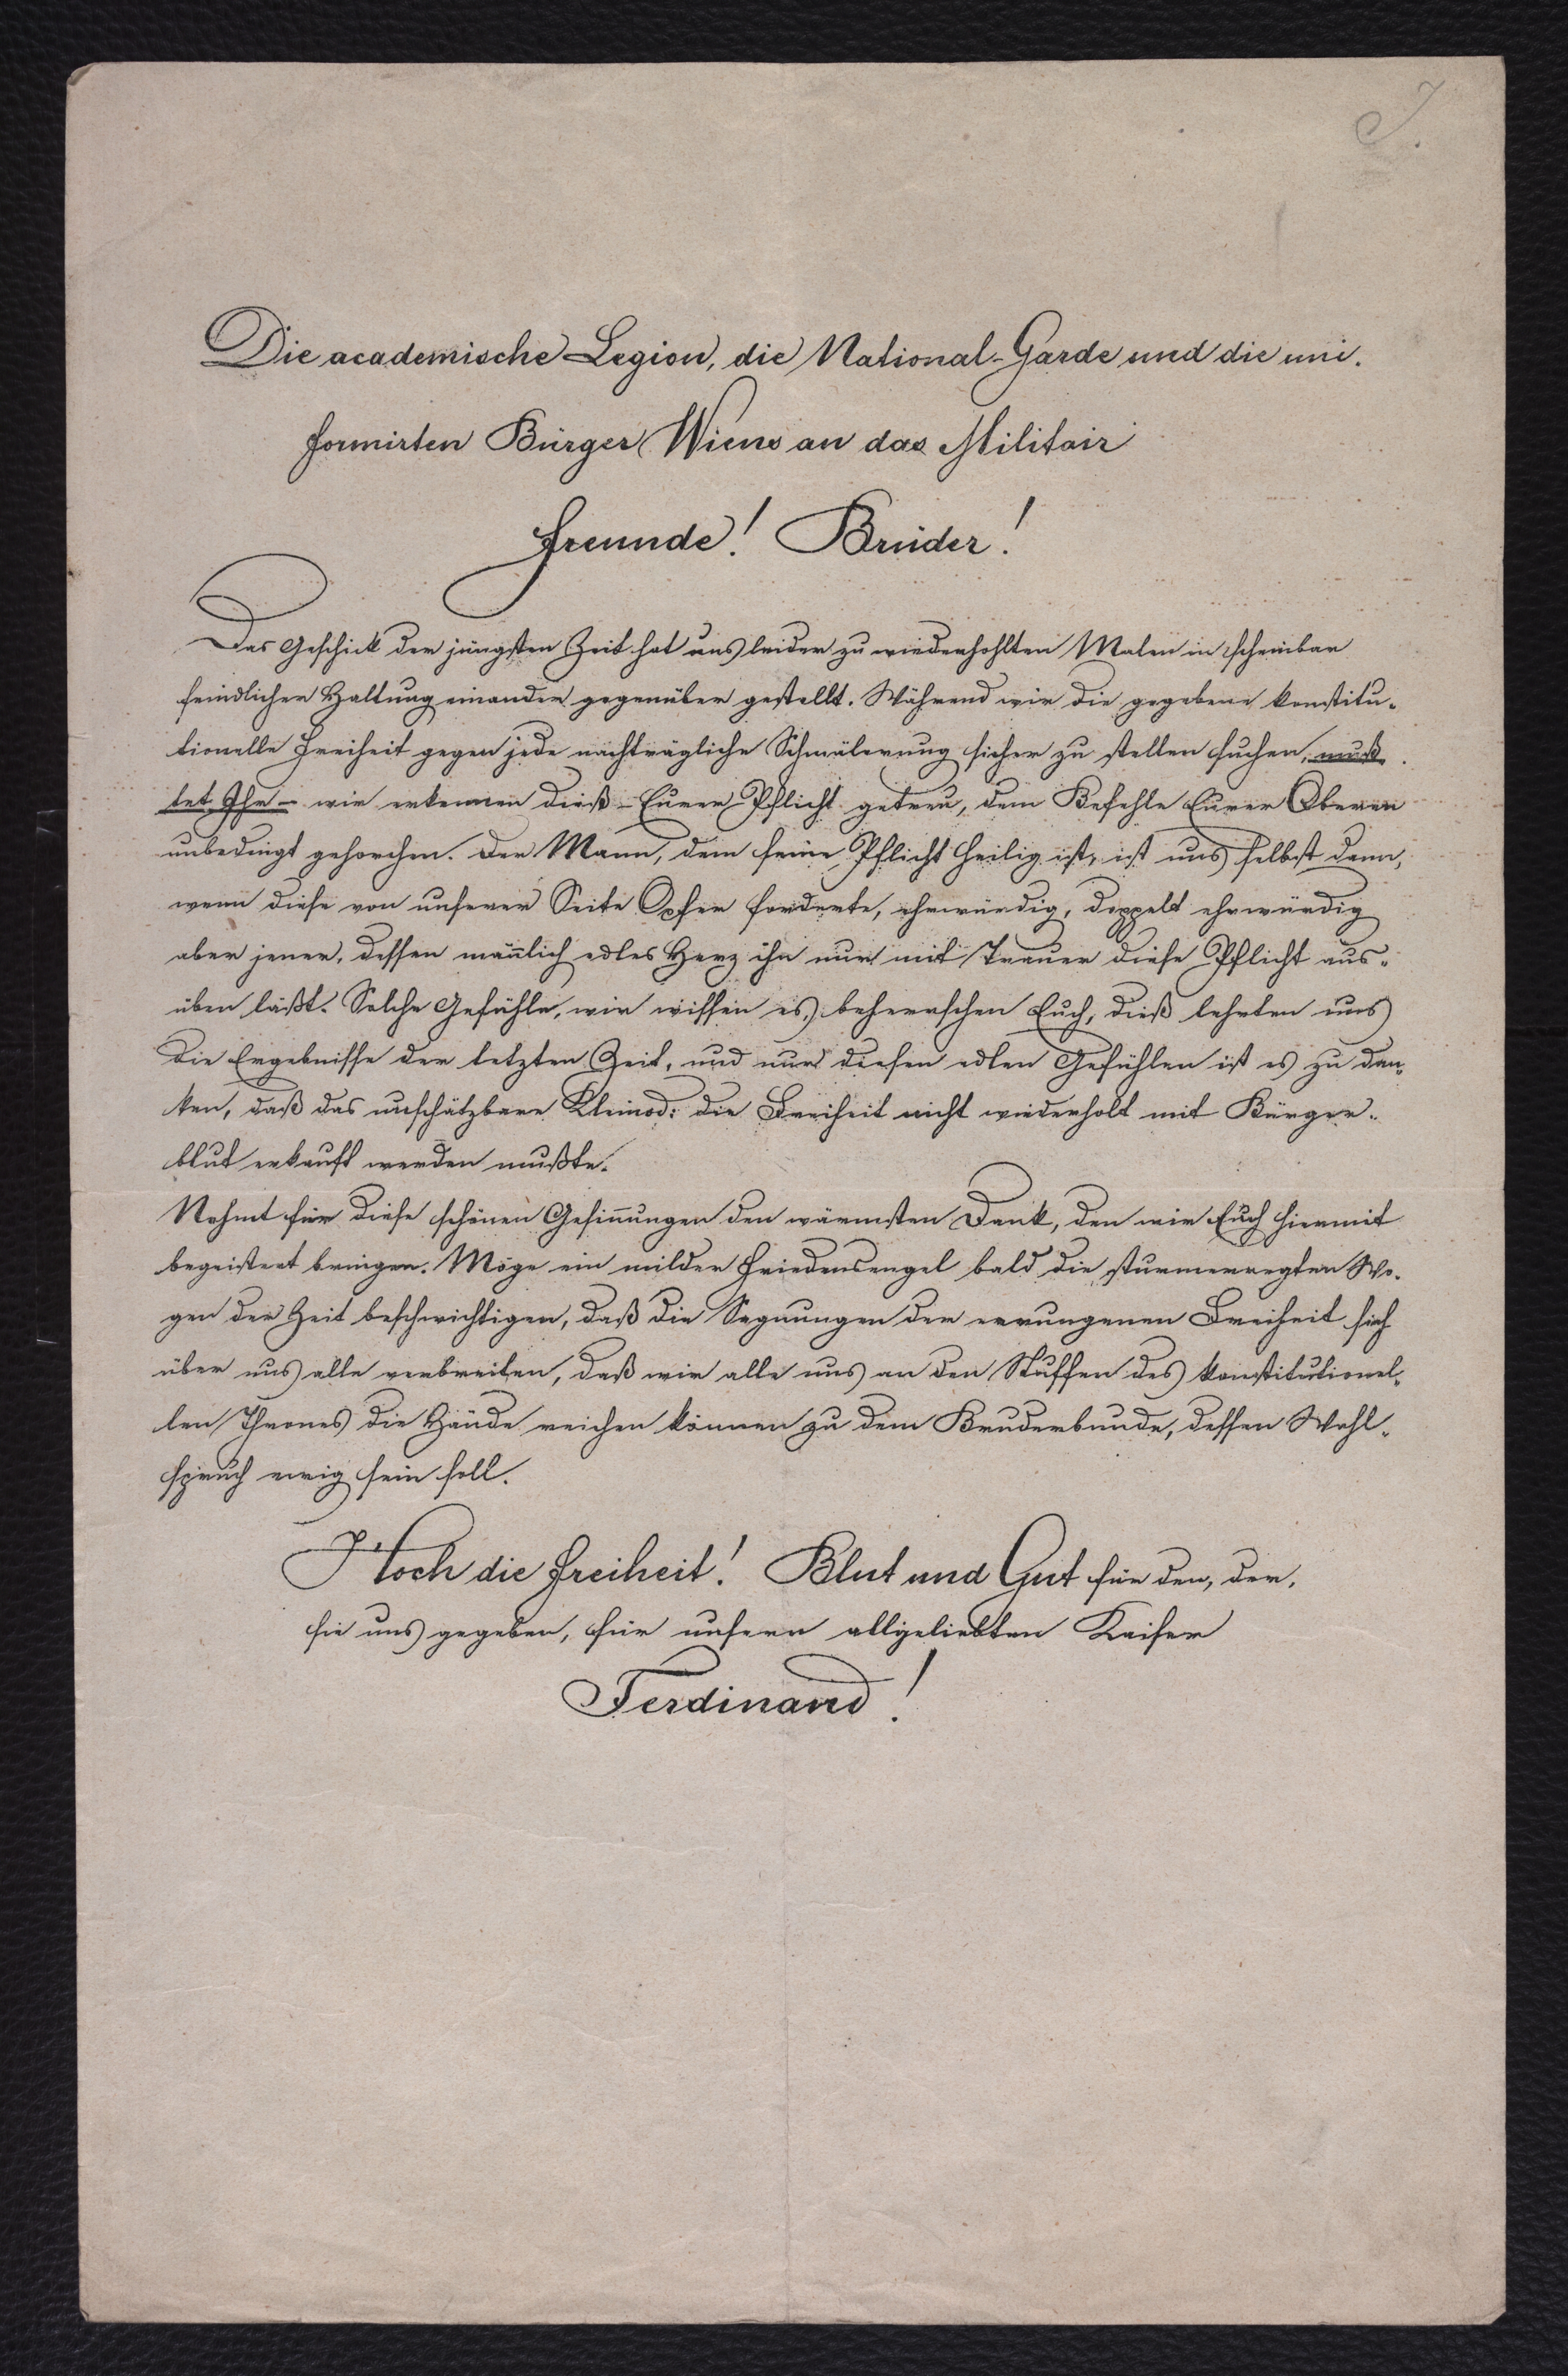 J.
Die academische Legion, die National-Garde und die uni-
formirten Bürger Wiens an das Militair
Freunde! Brüder!
Das Geschick der jüngsten Zeit hat uns leider zu wiederhohlten Malen in scheinbar
feindlicher Haltung einander gegenüber gestellt. Während wir die gegebene konstitu-
tionelle Freiheit gegen jede nachträgliche Schmälerung sicher zu stellen suchen, muß-
tet Ihr – wir erkennen dieß – Eurer Pflicht getreu, dem Befehle Eurer Oberen
unbedingt gehorchen. Der Mann, dem seine Pflicht heilig ist, ist uns selbst dann,
wenn diese von unserer Seite Opfer forderte, ehrwürdig, doppelt ehrwürdig
aber jener, dessen mänlich edles Herz ihn nur mit Trauer diese Pflicht aus-
üben läßt. Solche Gefühle, wir wissen es, beherrschen Euch, dieß lehrten uns
die Ergebnisse der letzten Zeit, und nur diesen edlen Gefühlen ist es zu dan-
ken, daß das unschätzbare Kleinod: die Freiheit nicht wiederholt mit Bürger-
blut erkauft werden mußte.
Nehmt für diese schönen Gesinnungen den wärmsten Dank, den wir Euch hiermit
begeistert bringen. Möge ein milder Friedensengel bald die sturmerregten Wo-
gen der Zeit beschwichtigen, daß die Segnungen der errungenen Freiheit sich
über uns alle verbreiten, daß wir alle uns an den Stuffen des konstitutionel-
len Thrones die Hände reichen können zu dem Bruderbunde, dessen Wahl-
spruch ewig sein soll.
Hoch die Freiheit! Blut und Gut für den, der,
sie uns gegeben, für unsern allgeliebten Kaiser
Ferdinand!